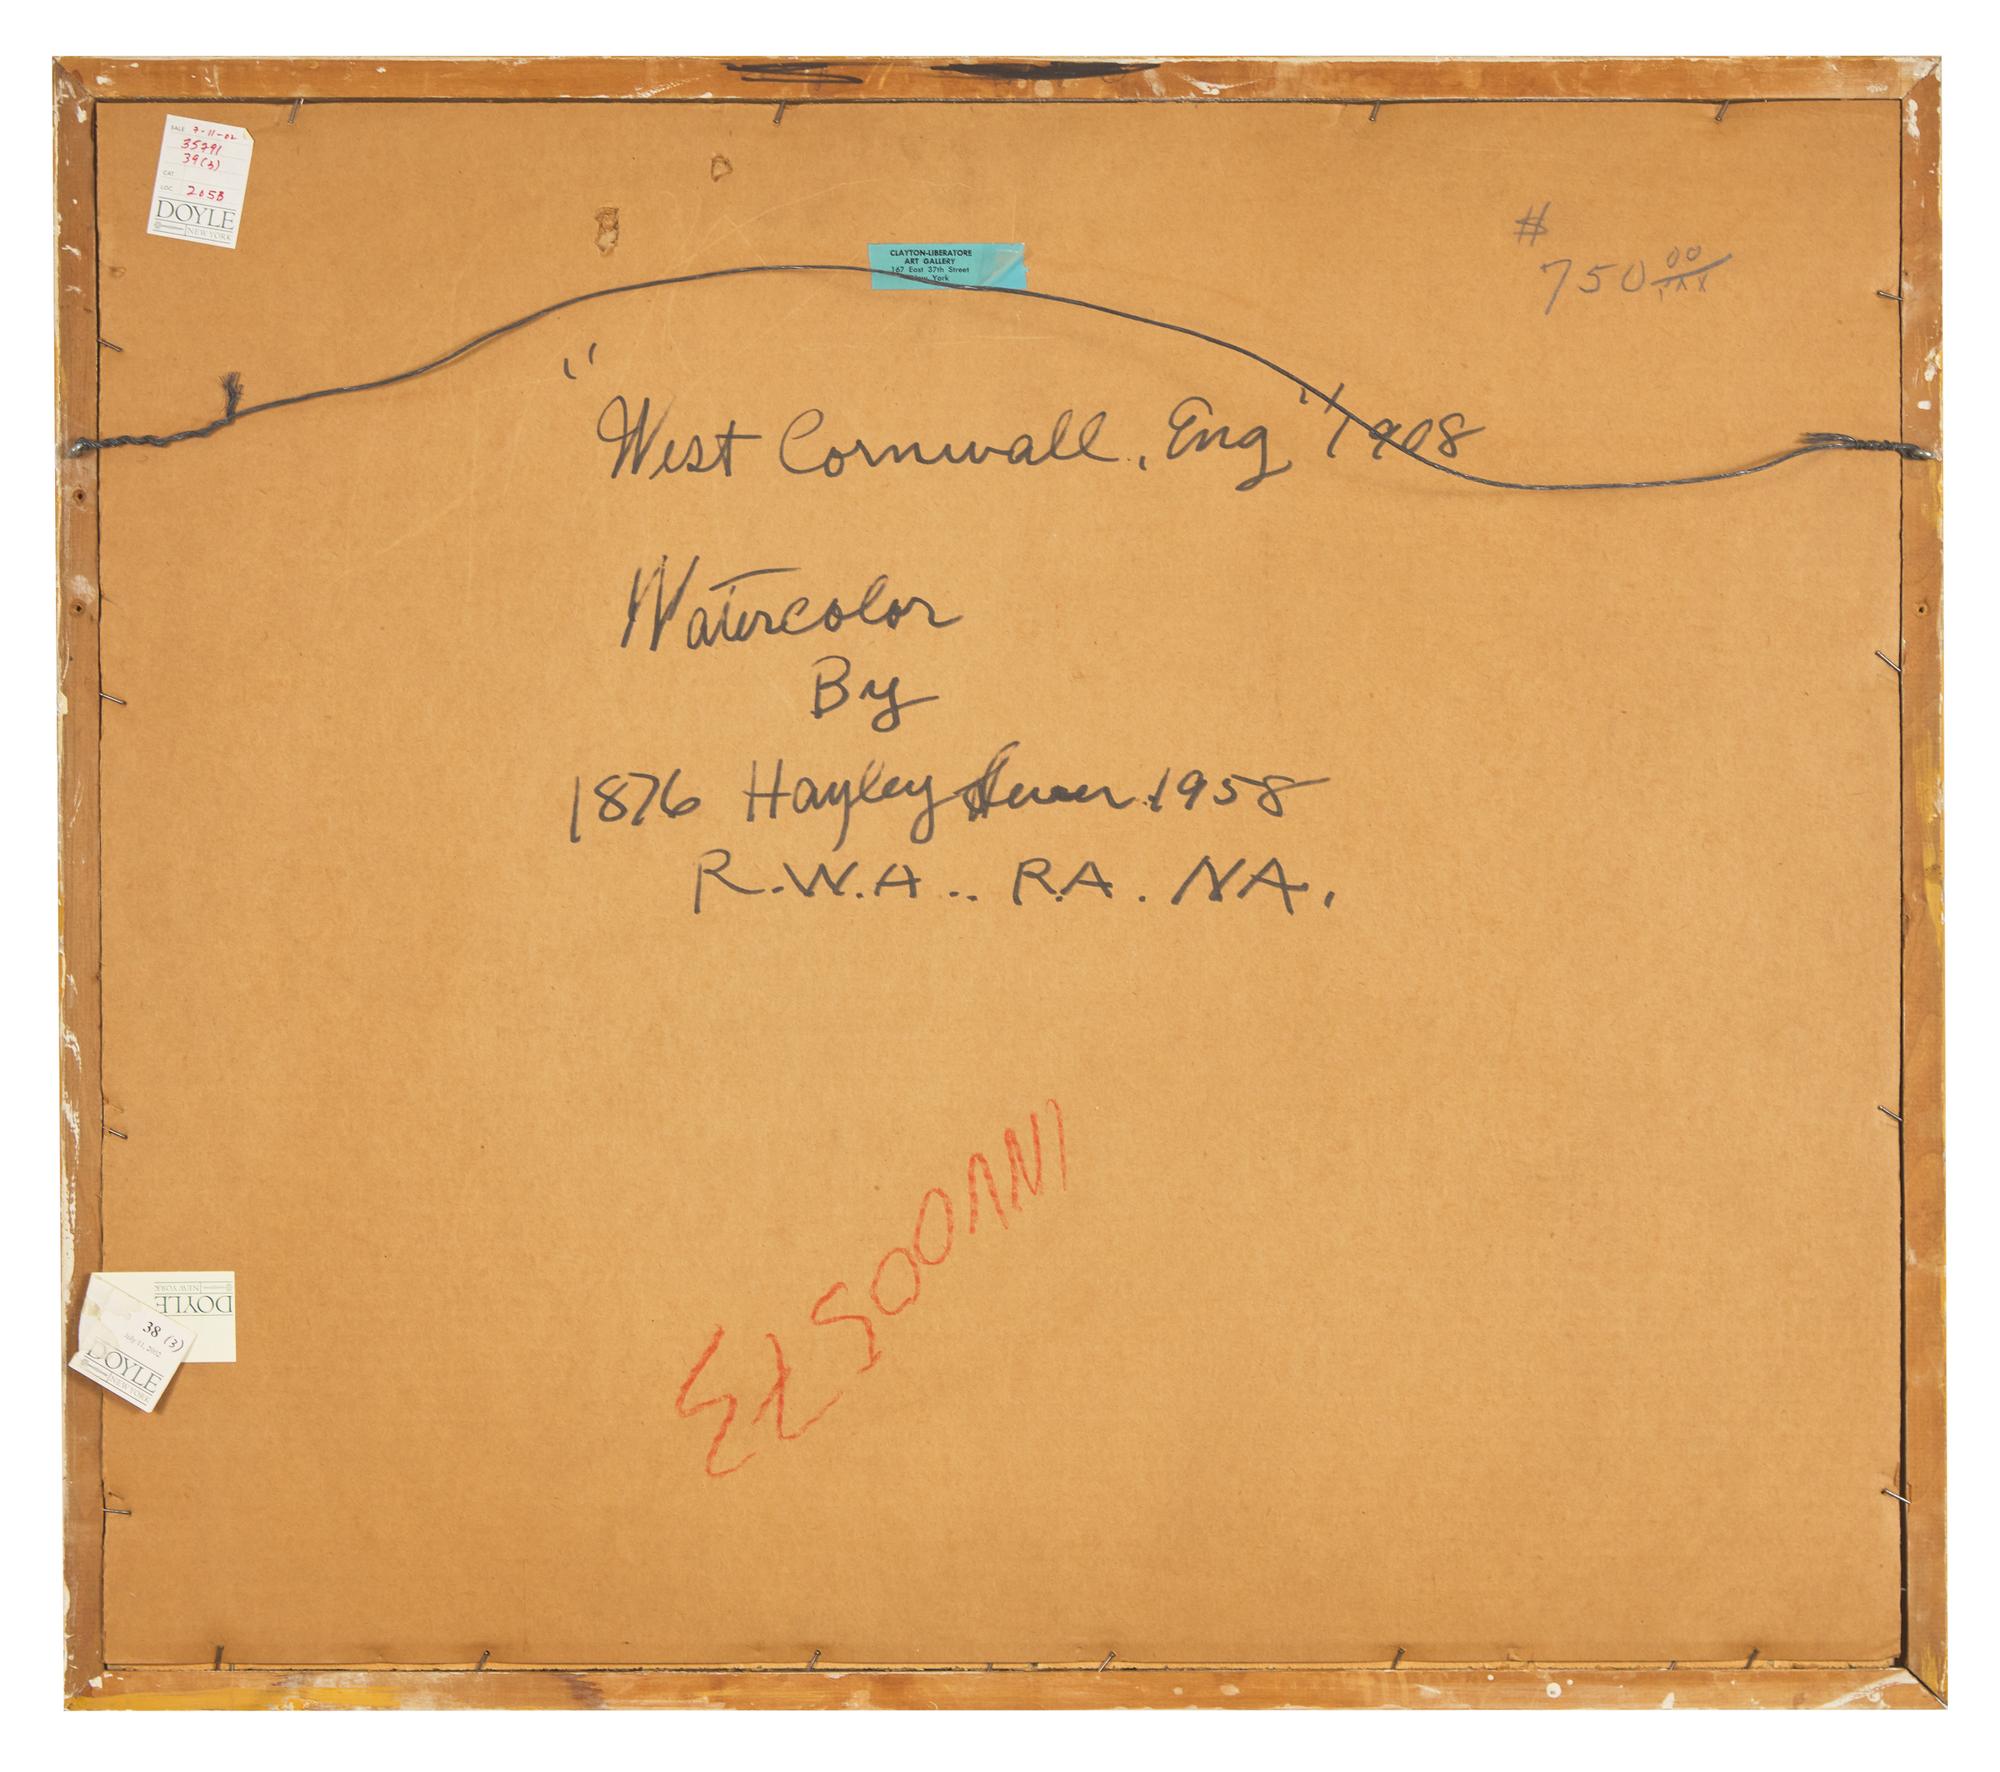 SALE 7-11-02
35791
39(3)
CAT
LOC 205B
DOYLE
NEW YORK
CLAYTON-LIBERATORE
ART GALLERY
167 East 37th Street
New York
#
750 00
"West Cornwall, Eng" 1908
Watercolor
By
1876 Hayley 1958
R.W.A.. R.A. NA.
DOYLE
NEW YORK
38 (3)
July 11, 2002
DOYLE
NEW YORK